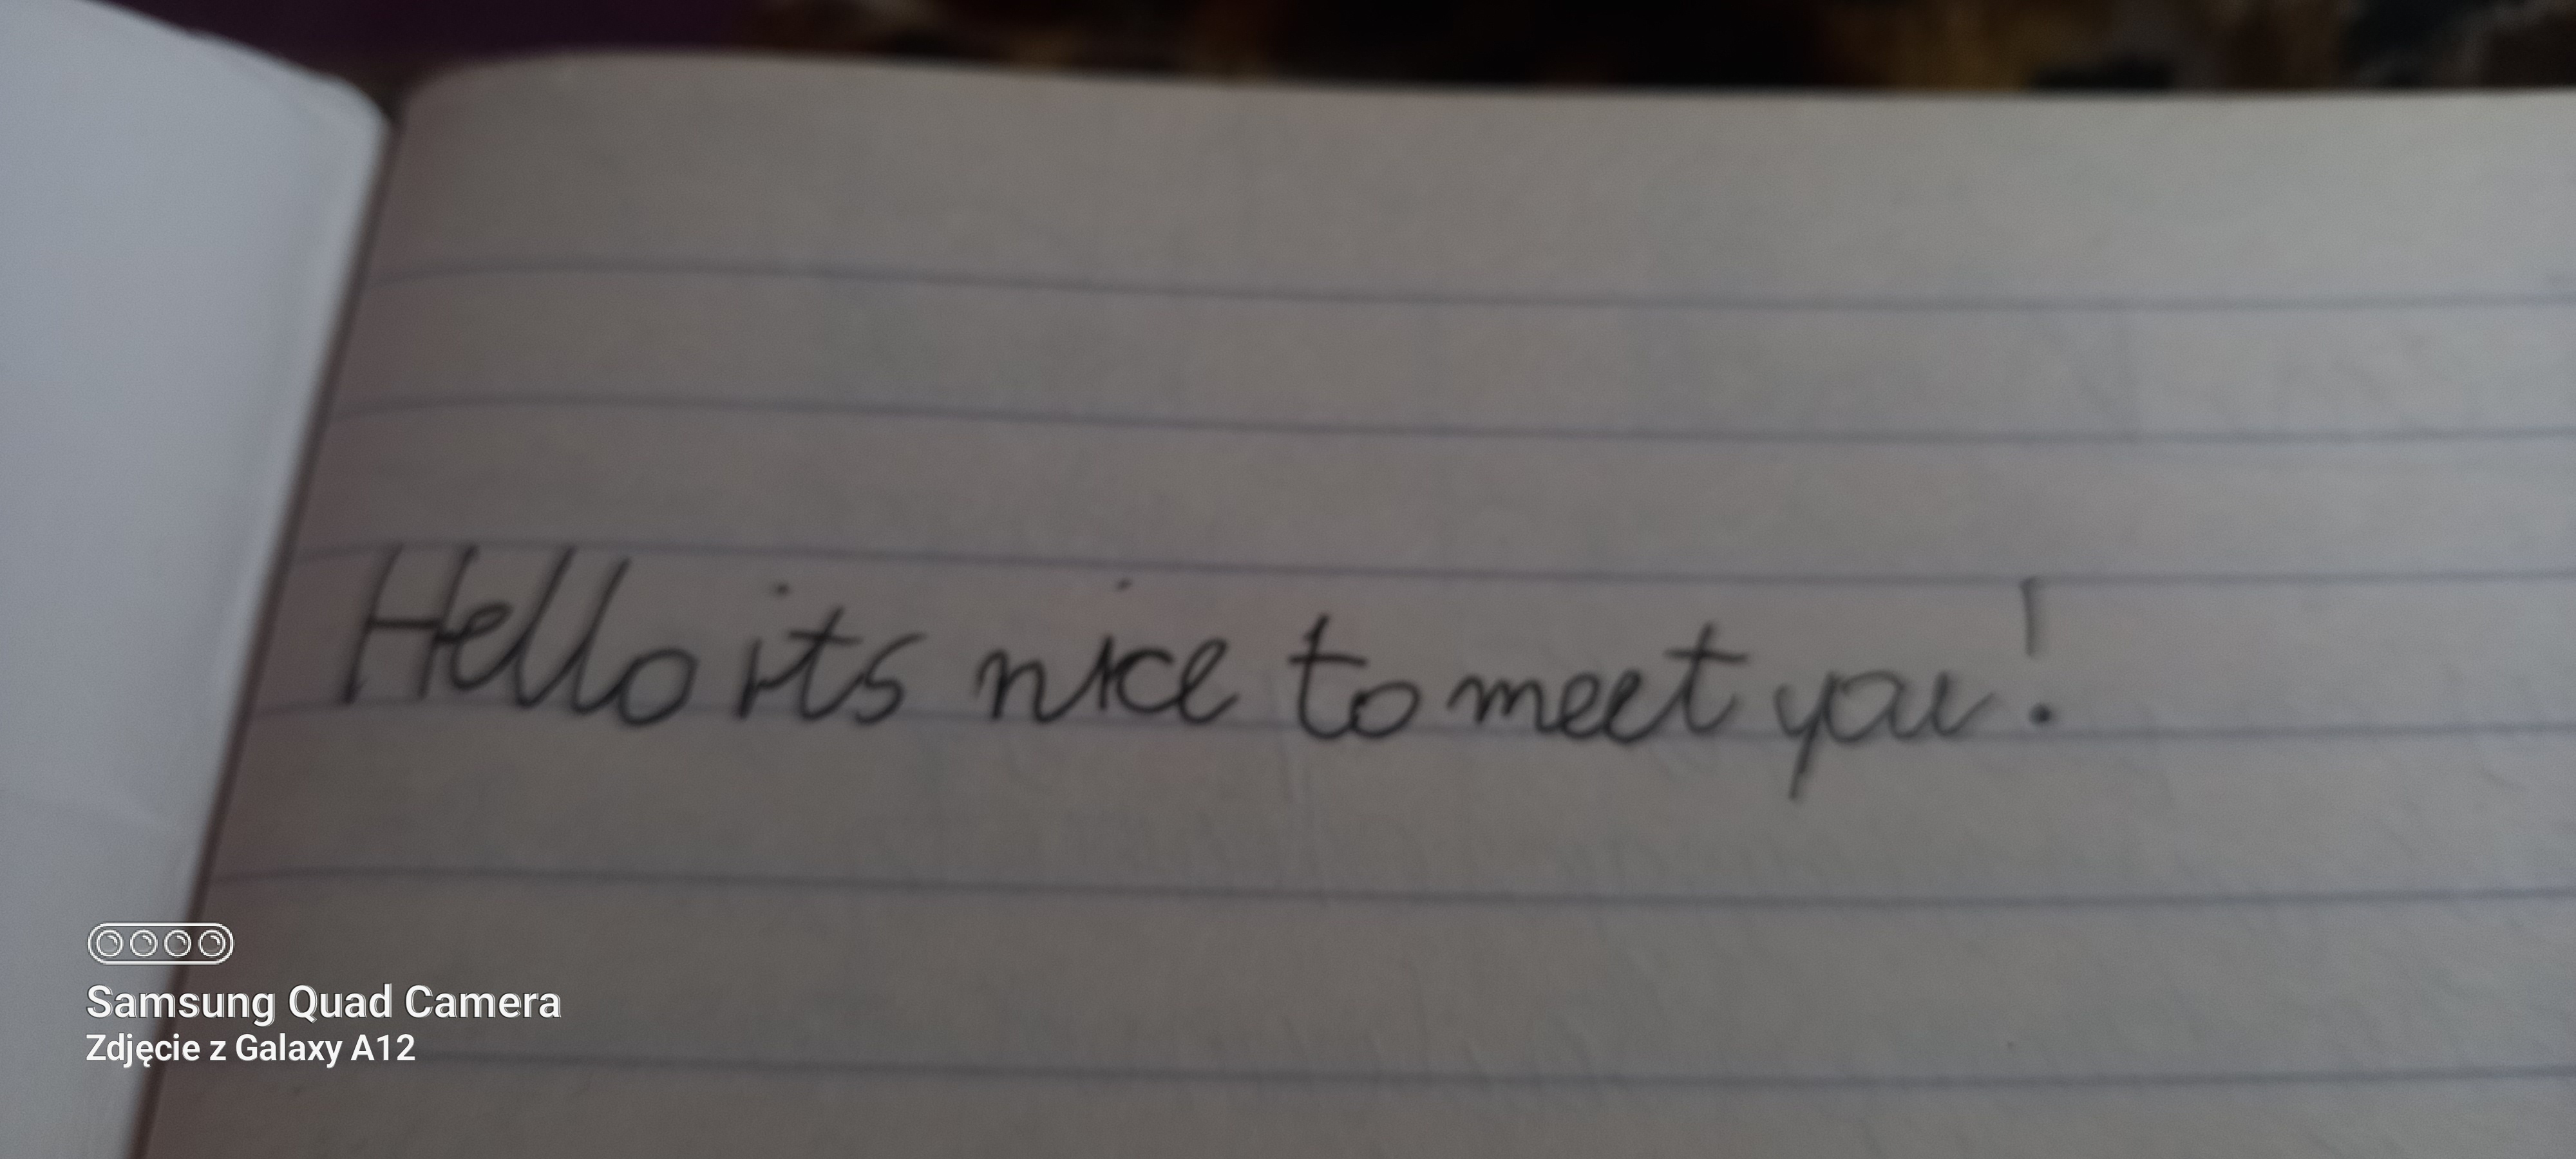 Hello its nice to meet you!
Samsung Quad Camera
Zdjęcie z Galaxy A12